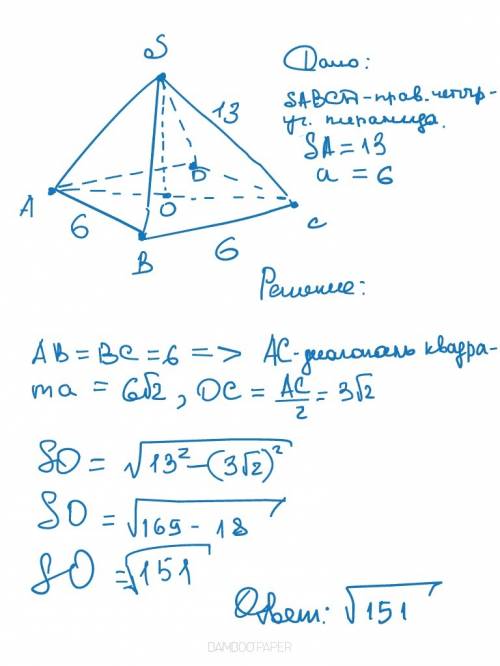 S
Дано:
13
SABCD-прав. четыр-
уг. пирамида.
SA = 13
a = 6
D
A
O
6
C
B
6
Решение:
AB = BC = 6 => AC-диагональ квадра-
та = 6√2, OC = AC/2 = 3√2
SO = √13²-(3√2)²
SO = √169 - 18
SO = √151
Ответ: √151
BAMBOO PAPER